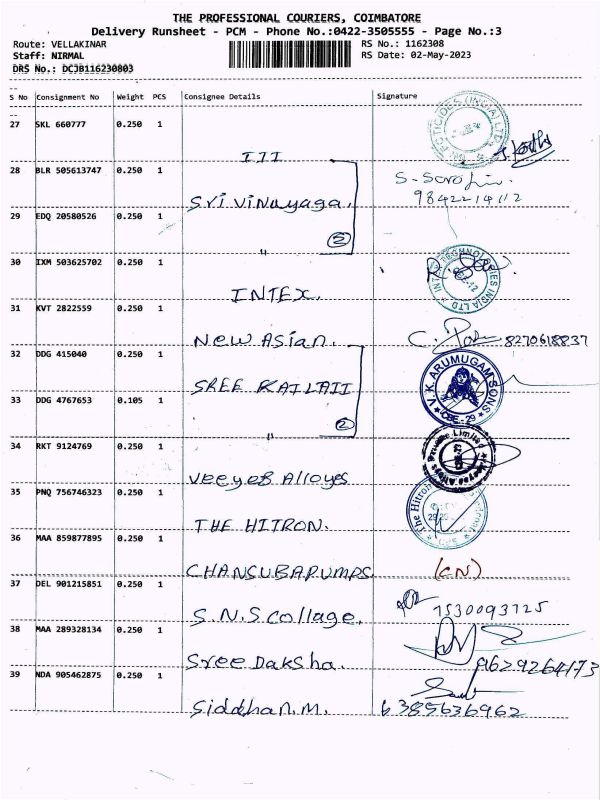 THE PROFESSIONAL COURIERS, COIMBATORE
Delivery Runsheet - PCM - Phone No.:0422-3505555 - Page No.:3
Route: VELLAKINAR
RS No.: 1162308
Staff: NIRMAL
RS Date: 02-May-2023
DRS No.: DCJB116230803
S No Consignment No Weight PCS Consignee Details Signature
27 SKL 660777 0.250 1
III
28 BLR 505613747 0.250 1
Sri Vinayaga.
9842214112
29 EDQ 20580526 0.250 1
"
2
30 IXM 503625702 0.250 1
INTEX.
31 KVT 2822559 0.250 1
New Asian.
8270618837
32 DDG 415040 0.250 1
SREE KAILAII
V.K. ARUMUGAM SONS
CBE - 29
33 DDG 4767653 0.105 1
"
2
34 RKT 9124769 0.250 1
Veeyes Alloyes
35 PNQ 756746323 0.250 1
THE HITRON.
The Hitron
36 MAA 859877895 0.250 1
CHANSUBAPUMPS.
(CN)
37 DEL 901215851 0.250 1
S.N.S collage.
7530093725
38 MAA 289328134 0.250 1
Sree Daksha.
9629264173
39 NDA 905462875 0.250 1
Siddhan.M.
6385636962